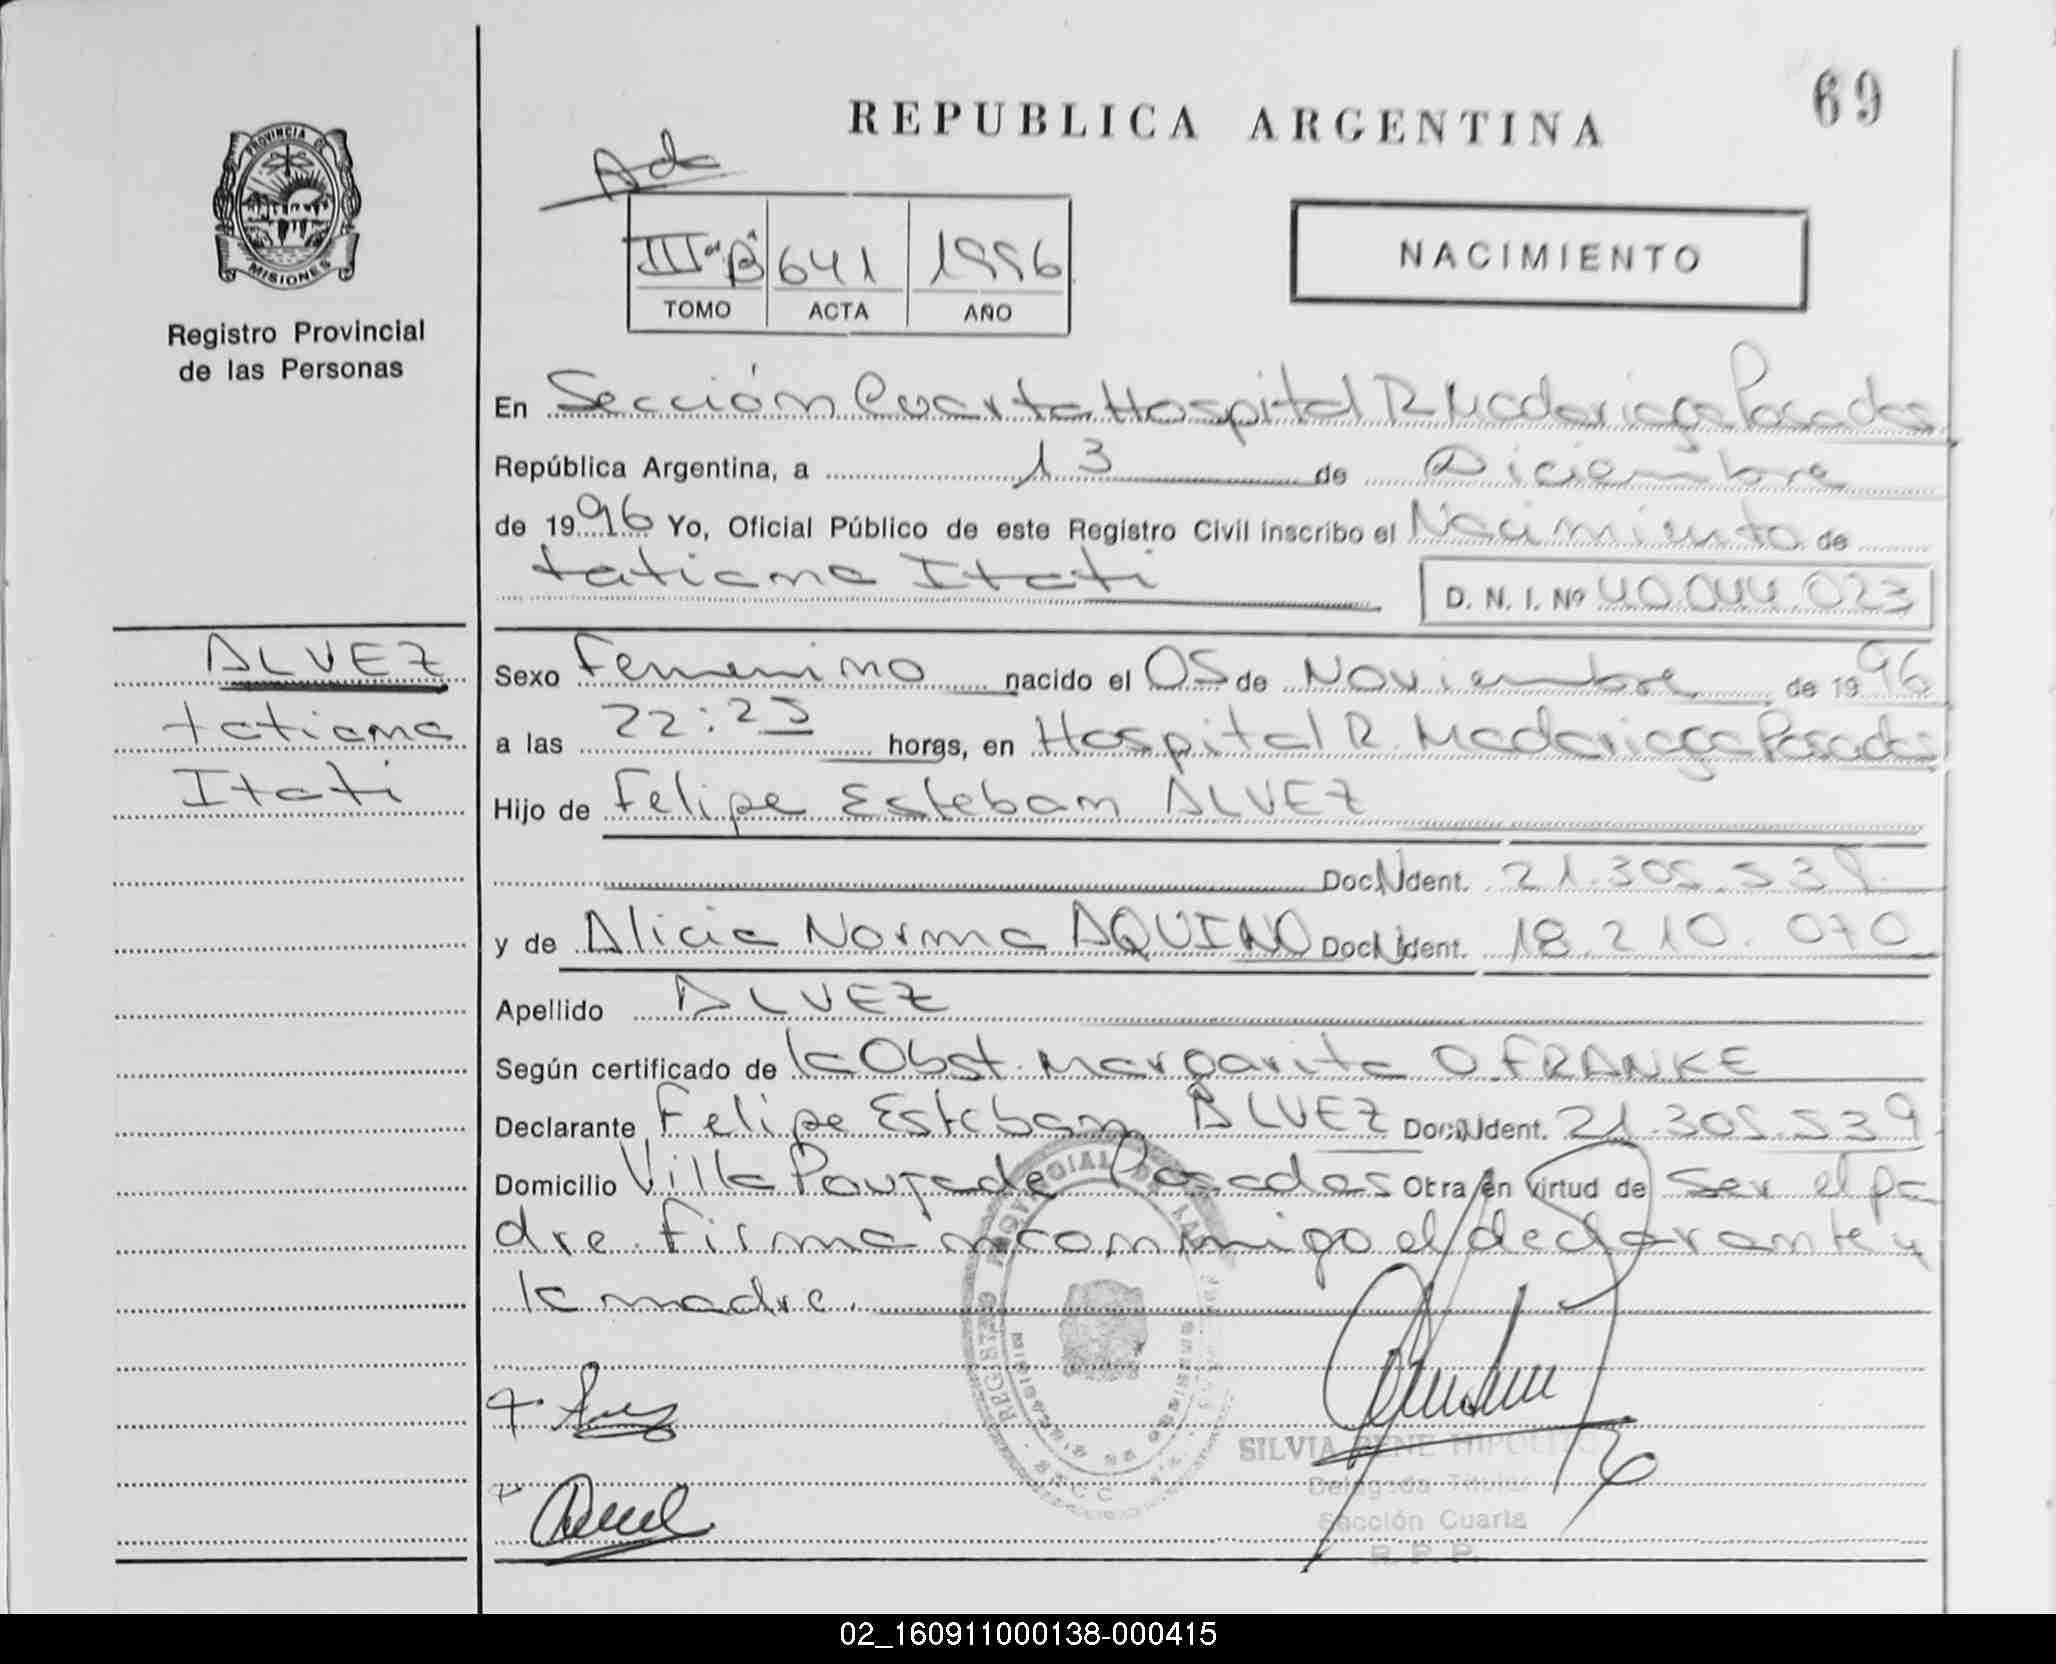 69
REPUBLICA ARGENTINA
PROVINCIA DE
MISIONES
Registro Provincial
de las Personas
IIIª Bª 641 1996
TOMO ACTA AÑO
NACIMIENTO
En Sección Cuarta Hospital R Madariaga Posadas
República Argentina, a 13 de Diciembre
de 1996 Yo, Oficial Público de este Registro Civil inscribo el Nacimiento de
tatiana Itati
D. N. I. Nº 40.044.023
ALVEZ
tatiana
Itati
Sexo Femenino nacido el 05 de Noviembre de 1996
a las 22:25 horas, en Hospital R. Madariaga Posadas
Hijo de Felipe Esteban ALVEZ
Doc. Ident. 21.305.539
y de Alicia Norma AQUINO Doc. Ident. 18.210.070
Apellido ALVEZ
Según certificado de la Obst. Margarita O. FRANKE
Declarante Felipe Esteban ALVEZ Doc. Ident. 21.305.539
Domicilio Villa Poujade Posadas Otra en virtud de Ser el pa
dre. Firman conmigo el declarante y
la madre.
SILVIA RENE HIPOLITO
Delegada Titular
Sección Cuarta
R. P. P.
02_160911000138-000415